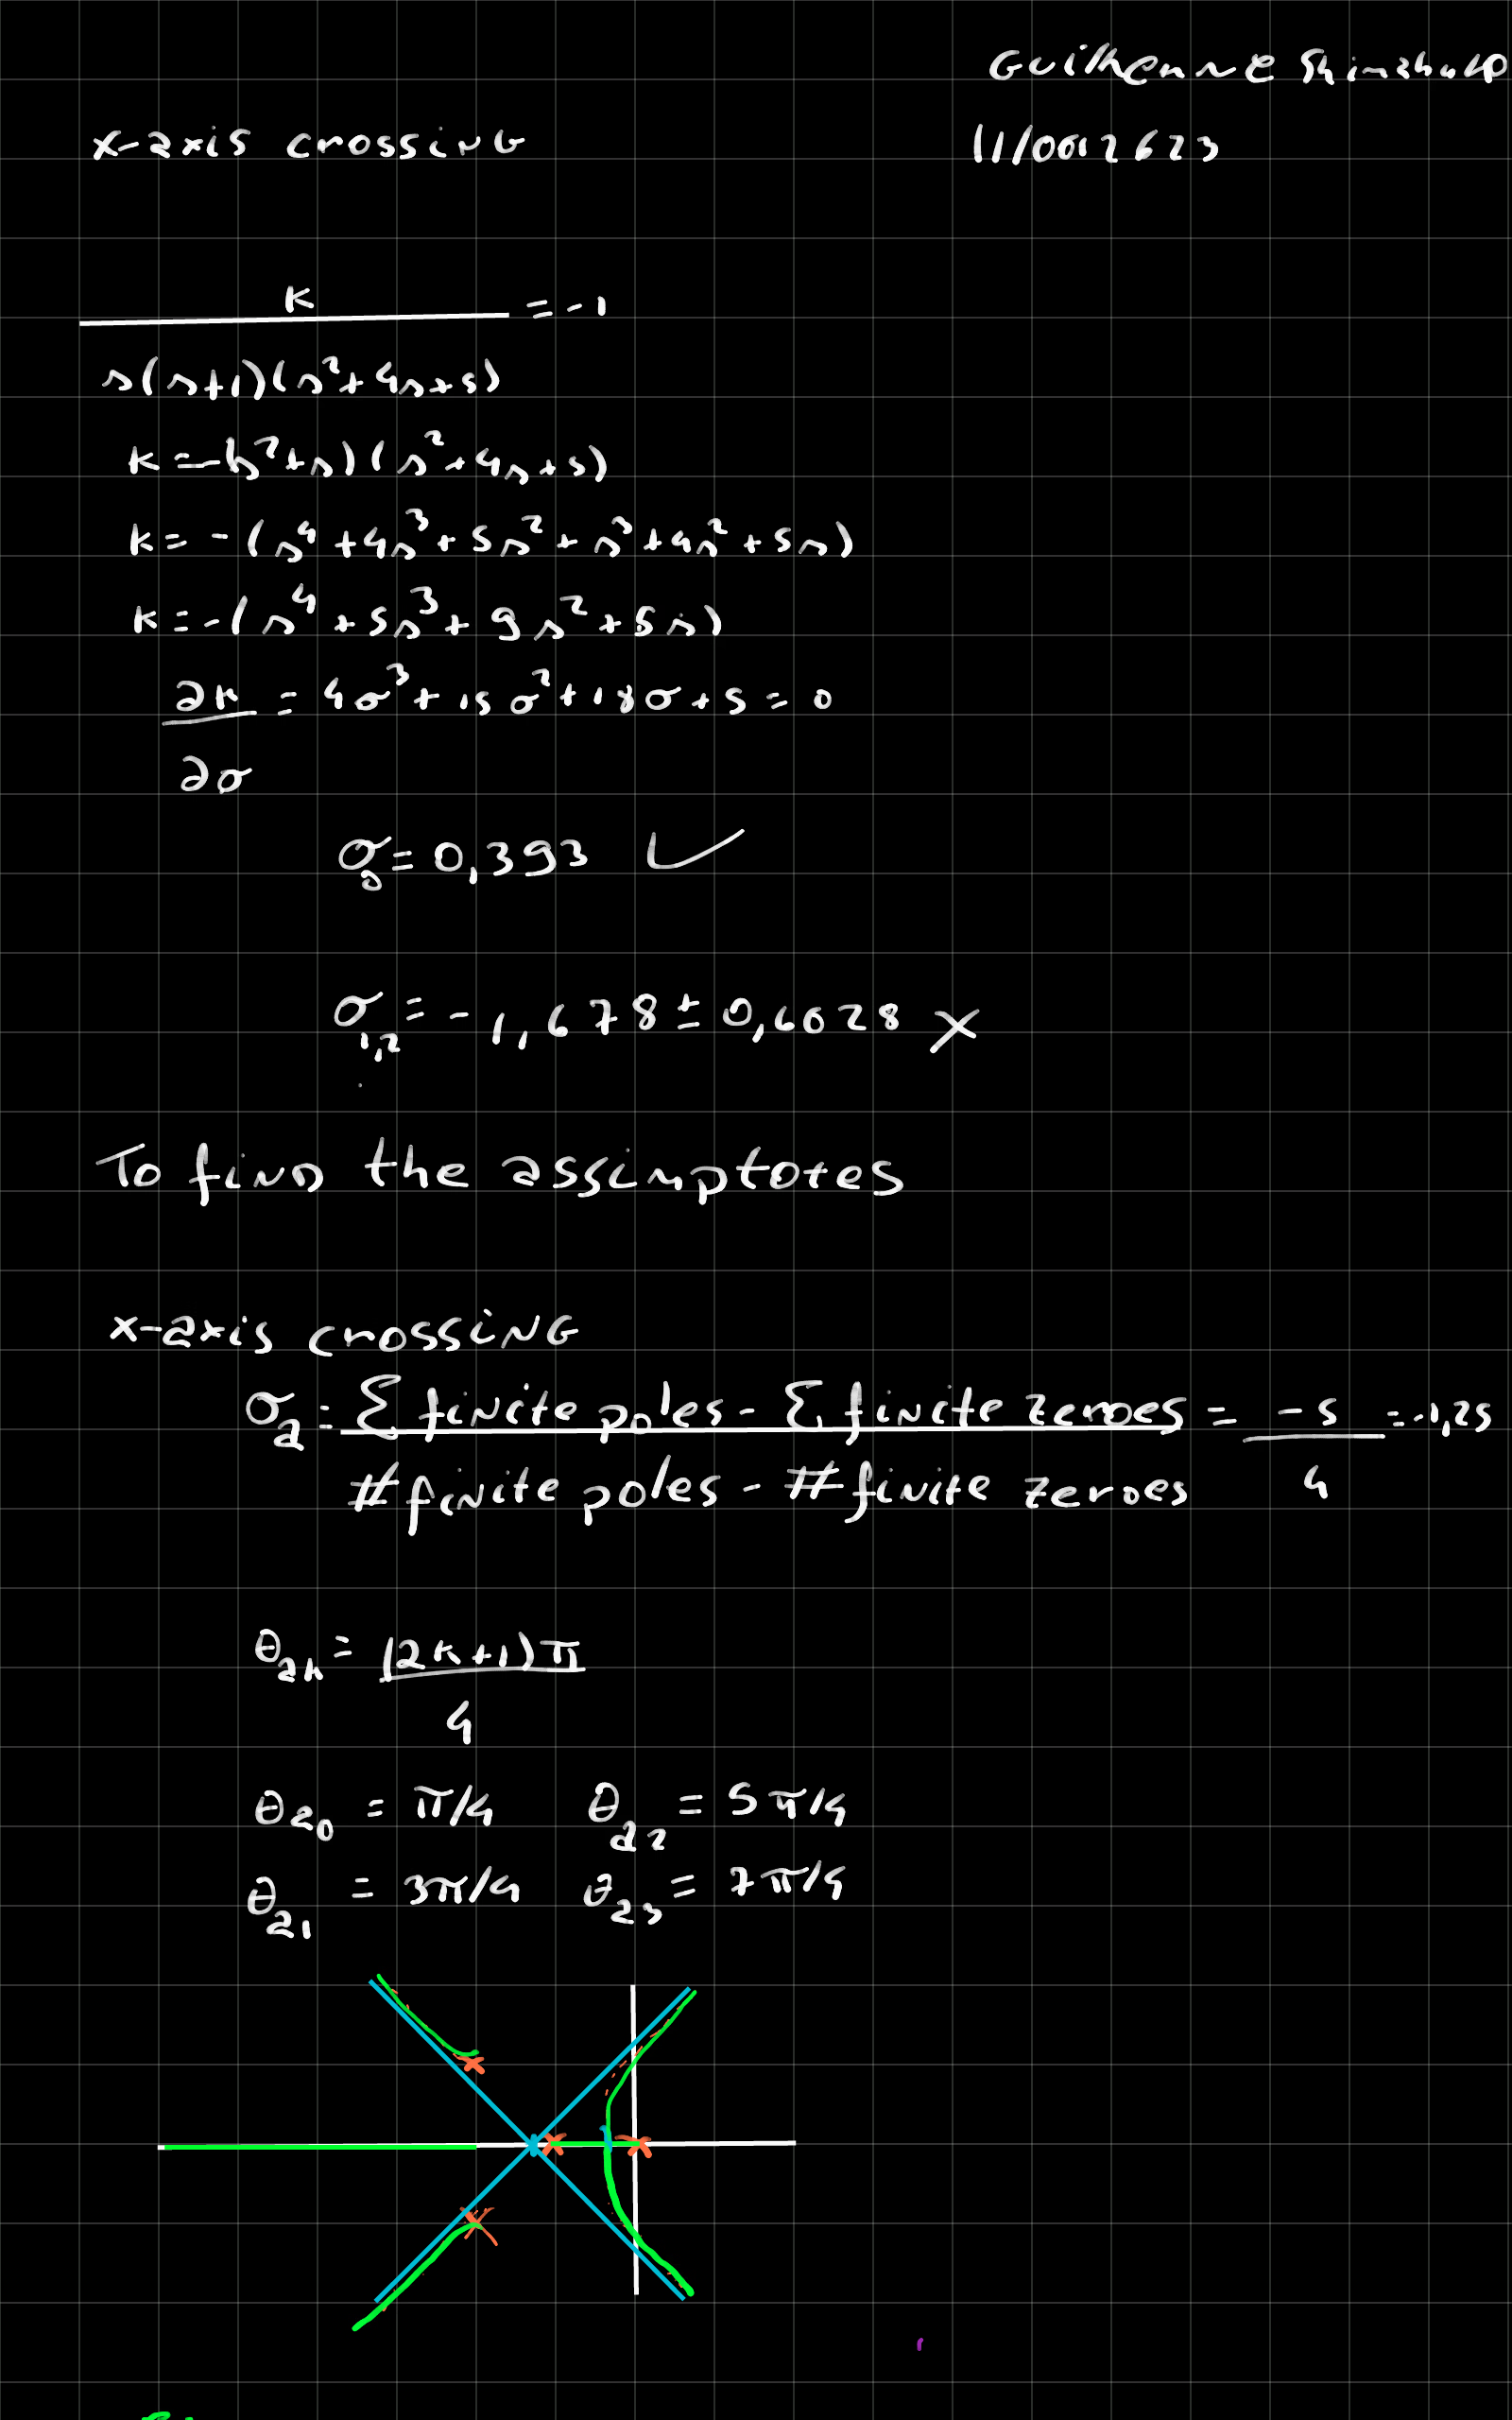 Guilherme Shinzhato
x-axis crossing
11/0012623
K
――― = -1
s(s+1)(s²+4s+5)
K = -(s²+s)(s²+4s+5)
K = -(s⁴+4s³+5s²+s³+4s²+5s)
K = -(s⁴+5s³+9s²+5s)
∂K/∂σ = 4σ³+15σ²+18σ+5 = 0
σ₀ = 0,393 ✓
σ₁,₂ = -1,678 ± 0,6028 X
To find the assimptotes
x-axis crossing
σa = (Σ finite poles - Σ finite zeroes)/(#finite poles - #finite zeroes) = -5/4 = -1,25
θak = (2k+1)π/4
θa0 = π/4 θa2 = 5π/4
θa1 = 3π/4 θa3 = 7π/4